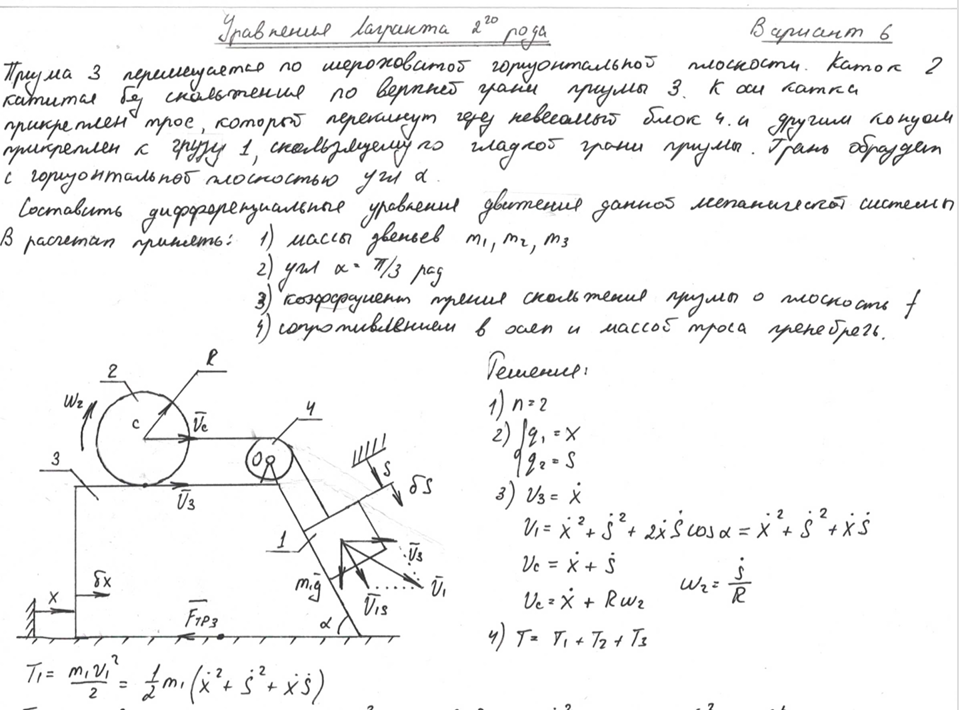 Уравнения Лагранжа 2го рода
Вариант 6
Призма 3 перемещается по шероховатой горизонтальной плоскости. Каток 2
катится без скольжения по верхней грани призмы 3. К оси катка
прикреплен трос, который перекинут через невесомый блок 4. и другим концом
прикреплен к грузу 1, скользящему по гладкой грани призмы. Грань образует
с горизонтальной плоскостью угл α.
Составить дифференциальные уравнения движения данной механической системы
В расчетах принять: 1) массы звеньев m₁, m₂, m₃
2) угл α = π/3 рад
3) коэффициент трения скольжения призмы о плоскость f
4) сопротивлением в осях и массой троса пренебречь.
Решение:
1) n = 2
2) { q₁ = x
q₂ = S
3) V₃ = ẋ
V₁ = ẋ² + Ṡ² + 2ẋṠ cos α = ẋ² + Ṡ² + ẋṠ
Vc = ẋ + Ṡ
Vc = ẋ + Rω₂
ω₂ = Ṡ/R
4) T = T₁ + T₂ + T₃
2
R
ω₂
C
V̄c
4
3
O
V̄₃
S
δS
1
V̄₃
m₁ḡ
V̄₁
V̄₁s
x
δx
F̄тр3
α
T₁ = m₁V₁²/2 = 1/2 m₁(ẋ² + Ṡ² + ẋṠ)